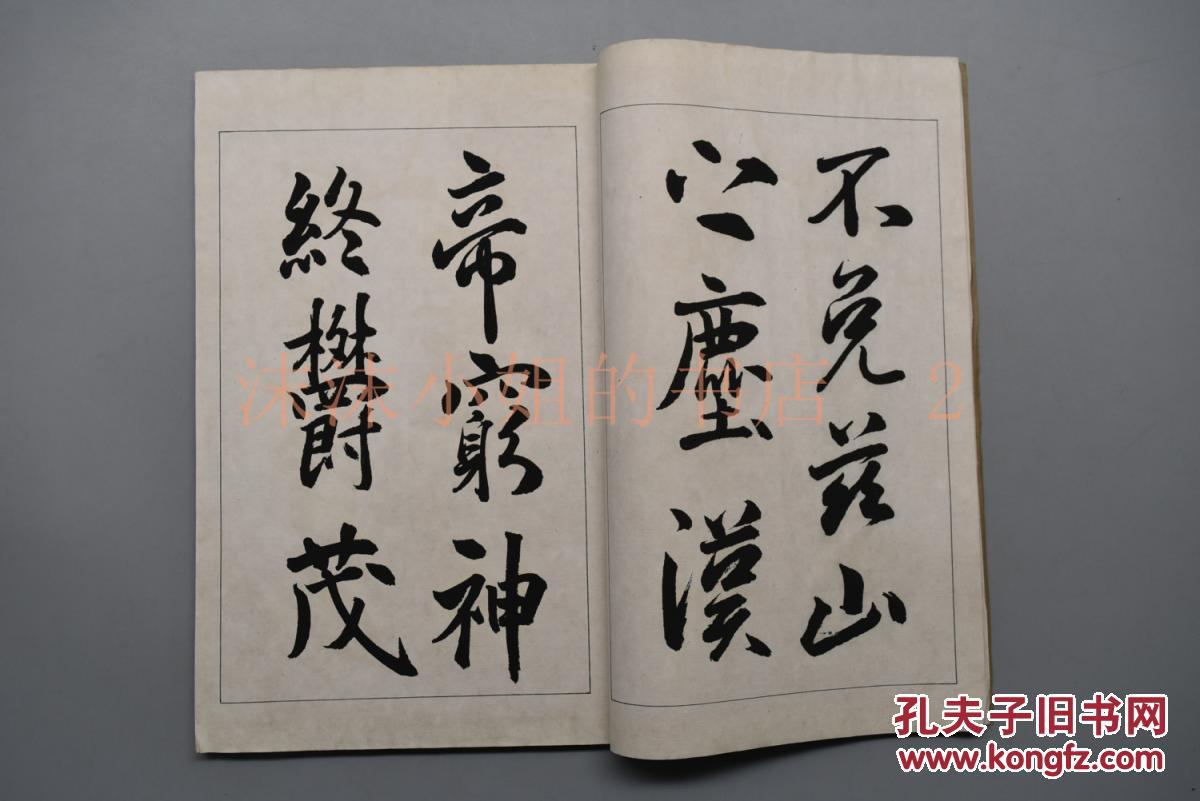 不免兹山
之塵漢
帝窮神
終欝茂
沫沫小姐的书店 2
孔夫子旧书网
www.kongfz.com